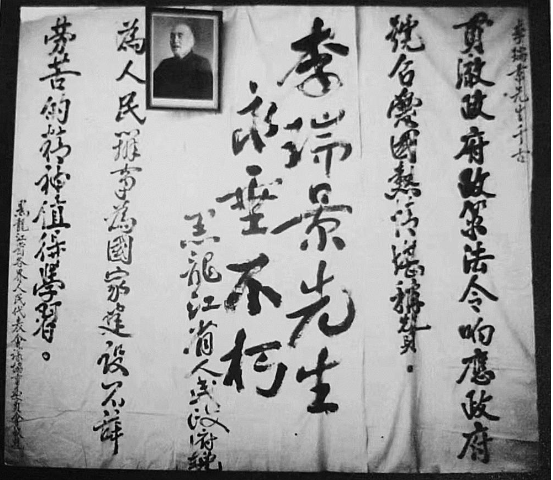 李瑞景先生千古
贯澈政府政策法令响應政府
號召愛國熱情堪稱贊。
李瑞景先生
永垂不朽
黑龍江省人民政府輓
為人民辦事為國家建設不辭
勞苦的精神值得學習。
黑龍江省各界人民代表會議協商委員會輓